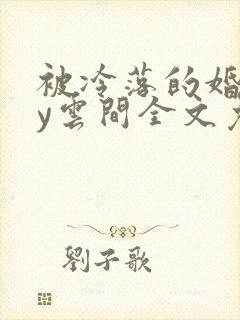 被冷落的婚
y雲間全文
劉子歌